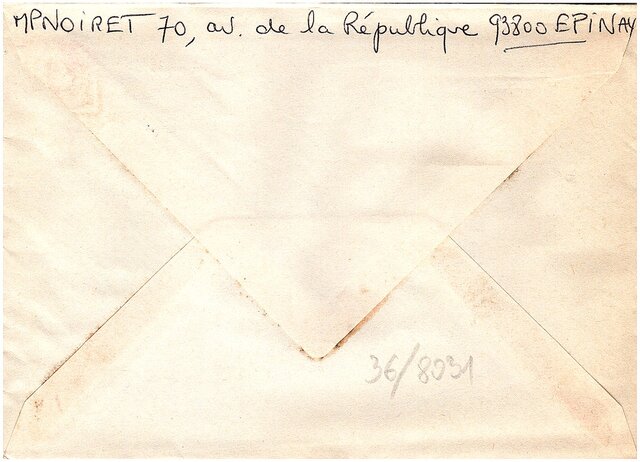 MPNOIRET 70, av. de la République 93800 EPINAY
36/8031